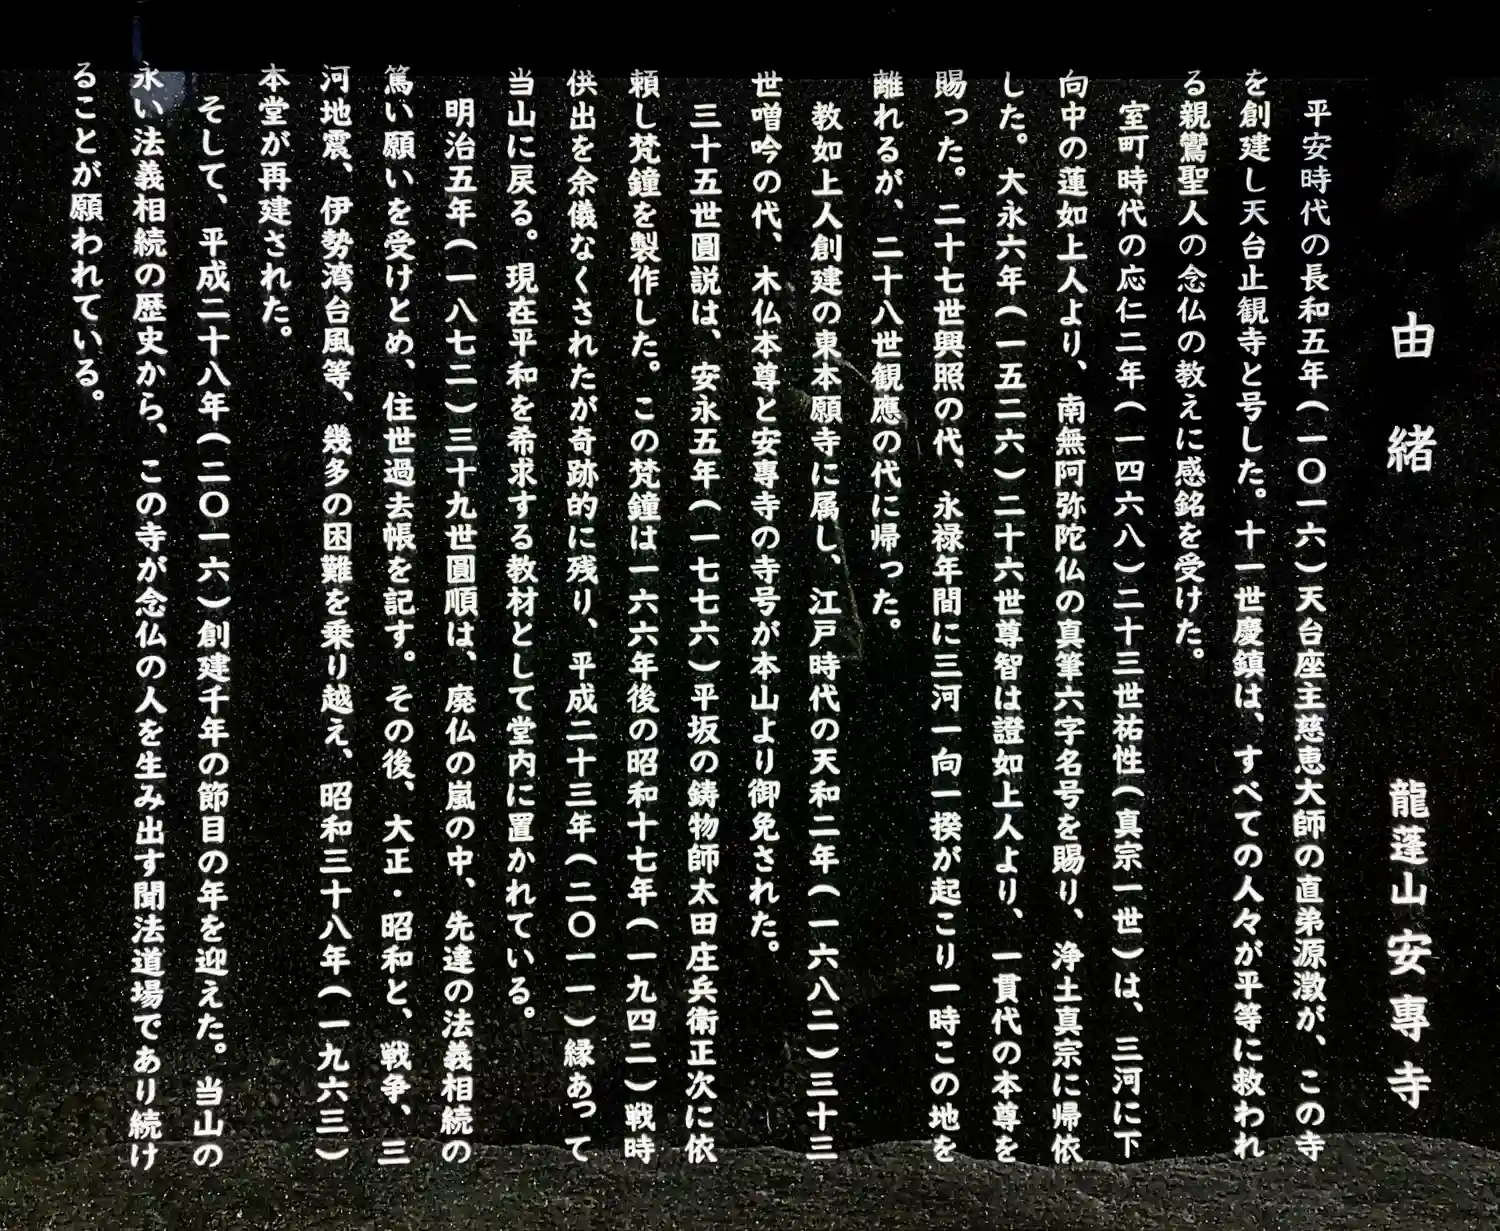 由緒 龍蓬山安專寺
平安時代の長和五年(一〇一六)天台座主慈恵大師の直弟源澂が、この寺
を創建し天台止観寺と号した。十一世慶鎮は、すべての人々が平等に救われ
る親鸞聖人の念仏の教えに感銘を受けた。
室町時代の応仁二年(一四六八)二十三世祐性(真宗一世)は、三河に下
向中の蓮如上人より、南無阿弥陀仏の真筆六字名号を賜り、浄土真宗に帰依
した。大永六年(一五二六)二十六世尊智は證如上人より、一貫代の本尊を
賜った。二十七世興照の代、永禄年間に三河一向一揆が起こり一時この地を
離れるが、二十八世観應の代に帰った。
教如上人創建の東本願寺に属し、江戸時代の天和二年(一六八二)三十三
世噌吟の代、木仏本尊と安專寺の寺号が本山より御免された。
三十五世圓説は、安永五年(一七七六)平坂の鋳物師太田庄兵衛正次に依
頼し梵鐘を製作した。この梵鐘は一六六年後の昭和十七年(一九四二)戦時
供出を余儀なくされたが奇跡的に残り、平成二十三年(二〇一一)縁あって
当山に戻る。現在平和を希求する教材として堂内に置かれている。
明治五年(一八七二)三十九世圓順は、廃仏の嵐の中、先達の法義相続の
篤い願いを受けとめ、住世過去帳を記す。その後、大正・昭和と、戦争、三
河地震、伊勢湾台風等、幾多の困難を乗り越え、昭和三十八年(一九六三)
本堂が再建された。
そして、平成二十八年(二〇一六)創建千年の節目の年を迎えた。当山の
永い法義相続の歴史から、この寺が念仏の人を生み出す聞法道場であり続け
ることが願われている。